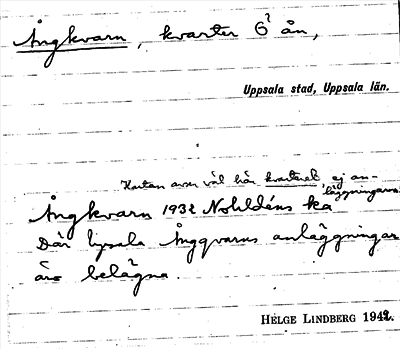 Ångkvarn, kvarter 6? ån,
Uppsala stad, Uppsala län.
Kartan avser väl här kvarteret ej an-
läggningarna
Ångkvarn 1932 ka
Där Upsala Ångqvarns anläggningar
äro belägna.
HELGE LINDBERG 1942.